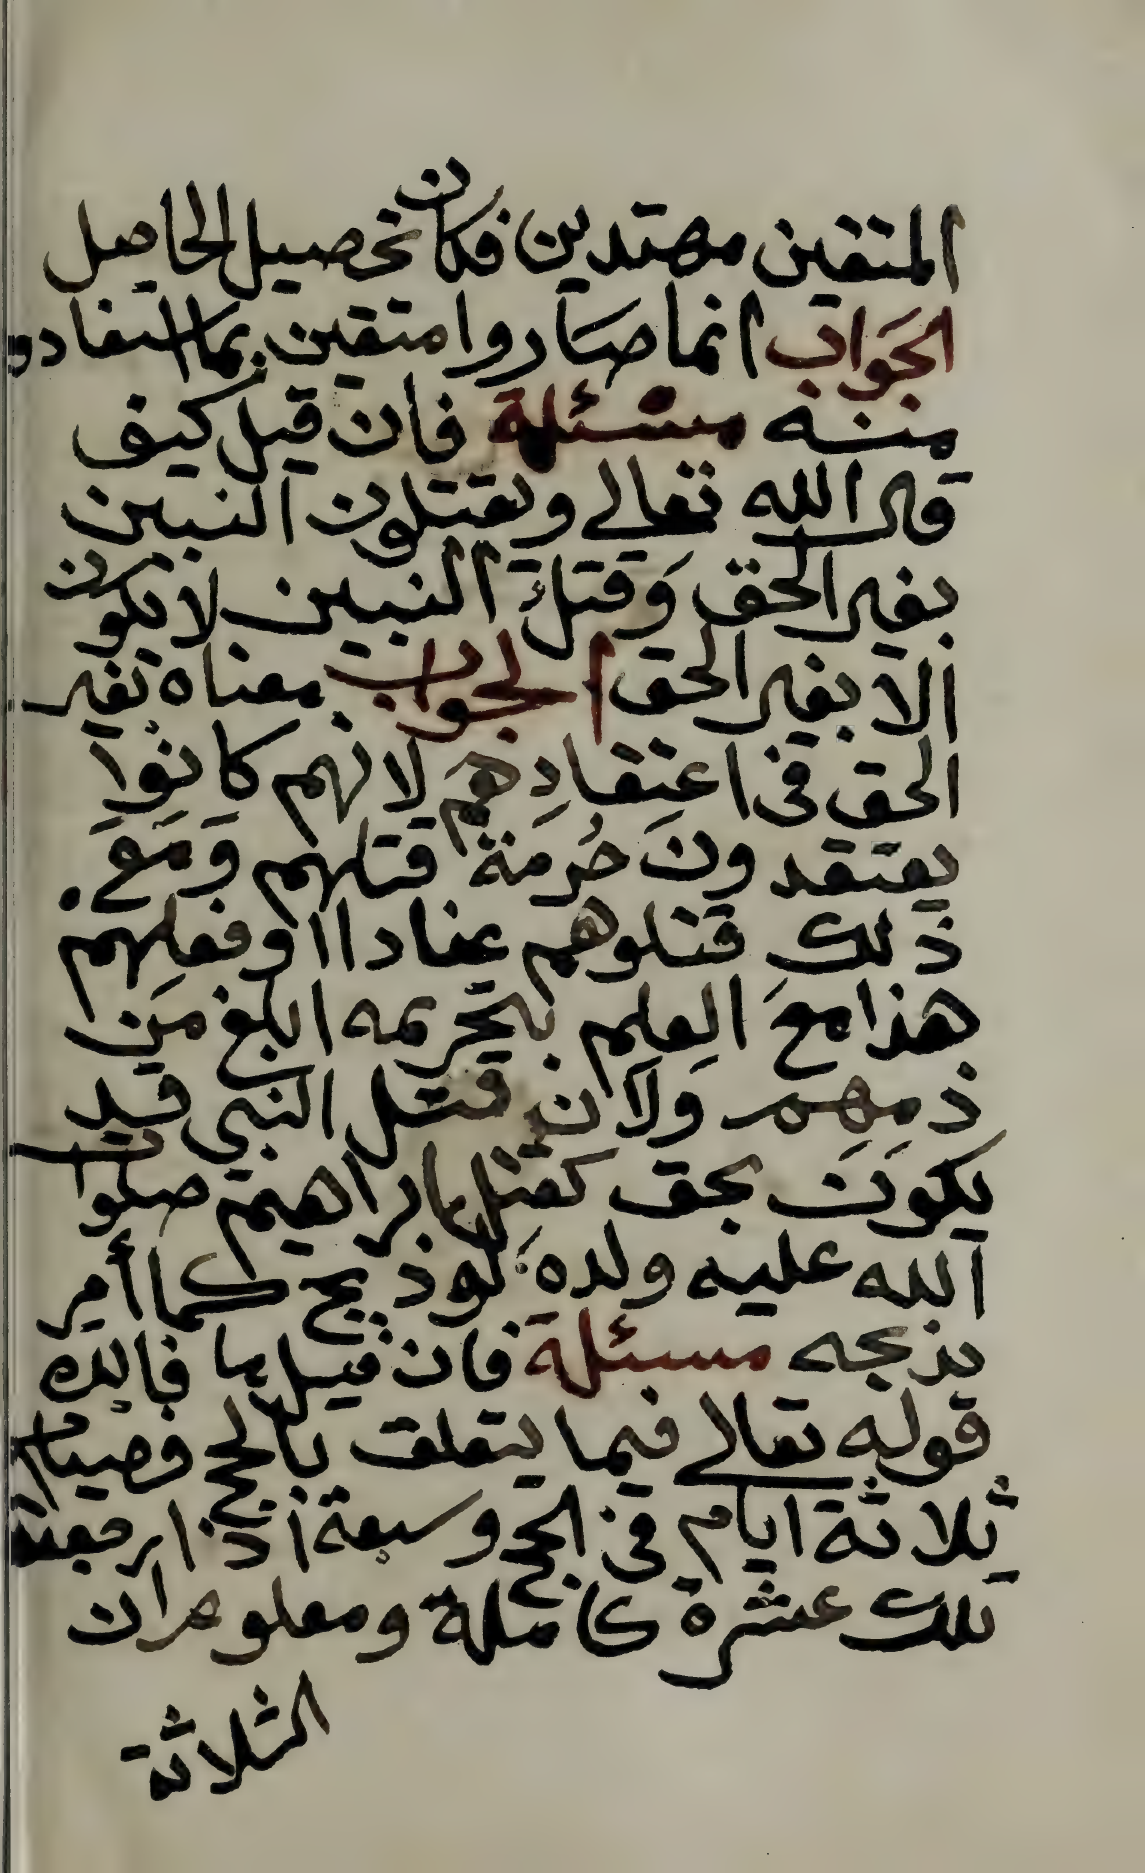 المتقين مهتدين فكان تحصيل الحاصل
الجَوَاب انما صَاروا متقين بما استفادو
منه مسئلة فان قيل كيف
قال الله تعالى ويقتلون النبين
بغير الحق وَقتل النبين لا يكون
الا بغير الحق الجواب معناه بغير
الحق في اعتِقادِهِم لانهم كانوْا
يعتقدون حُرمَة قتلهم وَمَع
ذلك قتلوهم عنادا اوفعلهم
هذا مع العِلِم بتحريمه ابلغ مِن
ذمهم ولان قتل النبي قد
يكوَنَ بحق كقتل ابراهيم صلوات
الله عليه ولده لوذبح كما أمر
بذبحه مسئلة فان قيل ما فائدة
قوله تعالى فيما يتعلق بالحج فصيام
ثلاثة ايام في الحج وسبعة اذا رجعتم
تلك عشرة كاملة ومعلوم ان
الثلاثة